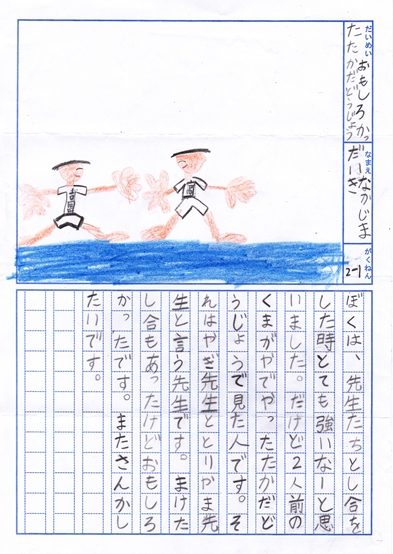 だいめい
おもしろかっ
たたかだどうじょう
なまえ
なかじま
だいき
がくねん
2-1
ぼくは、先生たちとし合を
した時とても強いなーと思
いました。だけど2人前の
くまがやでやったたかだど
うじょうで見た人です。そ
れはやぎ先生ととりかま先
生と言う先生です。まけた
し合もあったけどおもしろ
かったです。またさんかし
たいです。